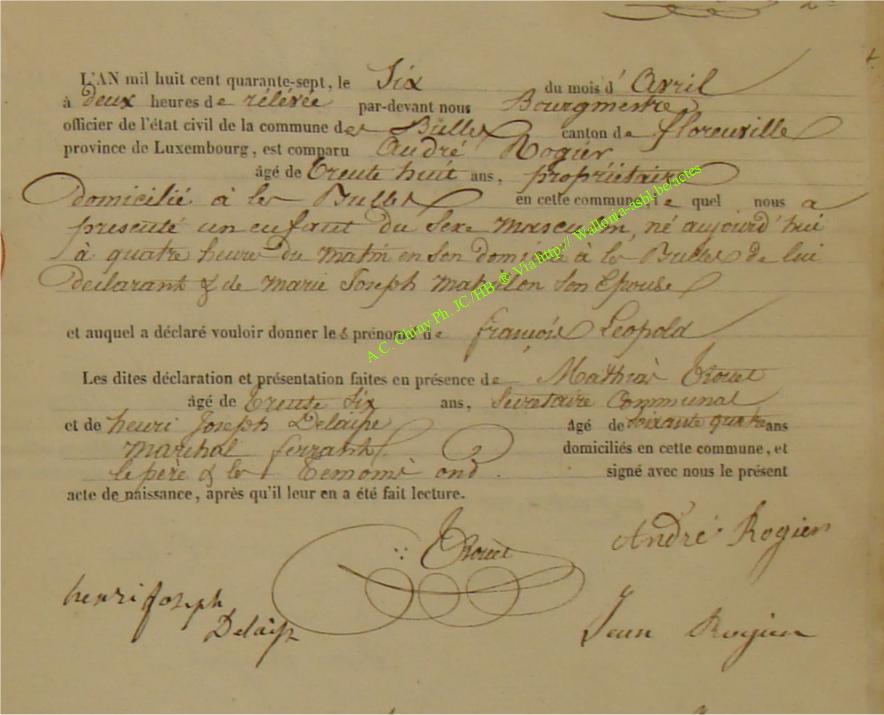 L'AN mil huit cent quarante-sept, le Six du mois d' Avril
à deux heures de rélévée par-devant nous Bourgmestre
officier de l'état civil de la commune des Bulles canton de florenville
province de Luxembourg, est comparu André Rogier
âgé de trente huit ans, propriétaire
domicilié à les Bulles en cette commune, le quel nous a
presenté un enfant du Sexe masculin, né aujourd'hui
à quatre heures du matin en Son domicile à les Bulles de lui
declarant & de marie Joseph Son Epouse
et auquel a déclaré vouloir donner les prénoms de françois Leopold
Les dites déclaration et présentation faites en présence de Mathias
âgé de trente Six ans, Secretaire Communal
et de henri Joseph Delaisse âgé de soixante quatre ans
marechal ferrant domiciliés en cette commune, et
le père & les temoins ont signé avec nous le présent
acte de naissance, après qu'il leur en a été fait lecture.
André Rogier
henri joseph
Jean Rogier
A.C. Chiny Ph. JC /HB © Via http:// Wallonia-asbl.be/actes